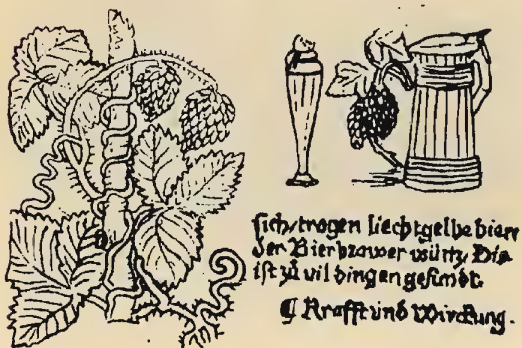 sich/tragen liechtgelbe bien
der Bierbrawer würtz/ Die
ist zů vil dingen gesundt.
¶ Krafft und Wirckung.